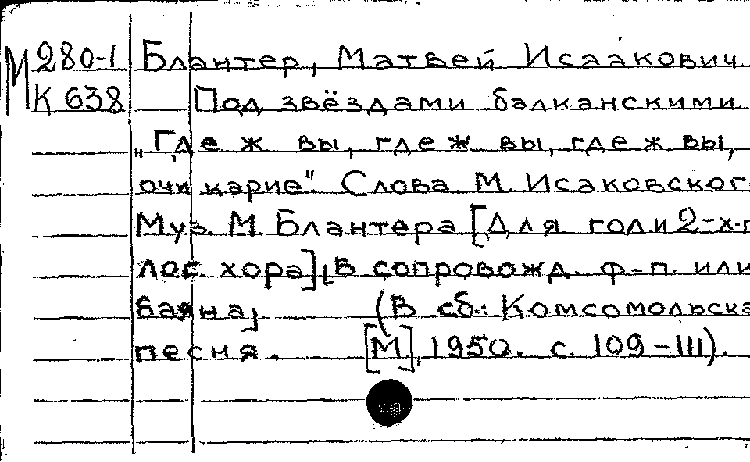 М 280-1 Блантер, Матвей Исаакович
К 638 Под звёздами балканскими
„Где ж вы, где ж вы, где ж вы,
очи карие". Слова М. Исаковског
Муз. М. Блантера [Для гол и 2-х-г
лос. хора], [в сопровожд. ф-п. или
баяна] (В сб.: Комсомольска
песня. [М], 1950. с. 109-111).